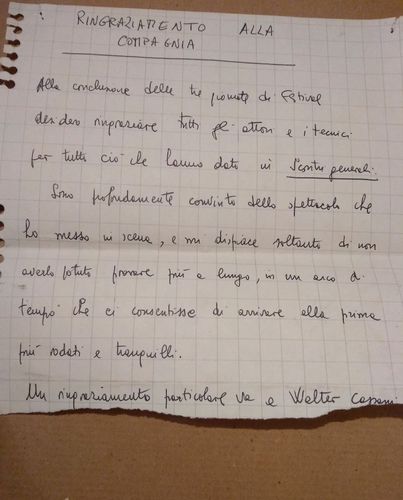 RINGRAZIAMENTO ALLA
COMPAGNIA
Alla conclusione delle tre giornate di Festival
desidero ringraziare tutti gli attori e i tecnici
per tutto ciò che hanno dato in Scontri generali.
Sono profondamente convinto dello spettacolo che
ho messo in scena, e mi dispiace soltanto di non
averlo potuto provare più a lungo, in un arco di
tempo che ci consentisse di arrivare alla prima
più rodati e tranquilli.
Un ringraziamento particolare va a Walter